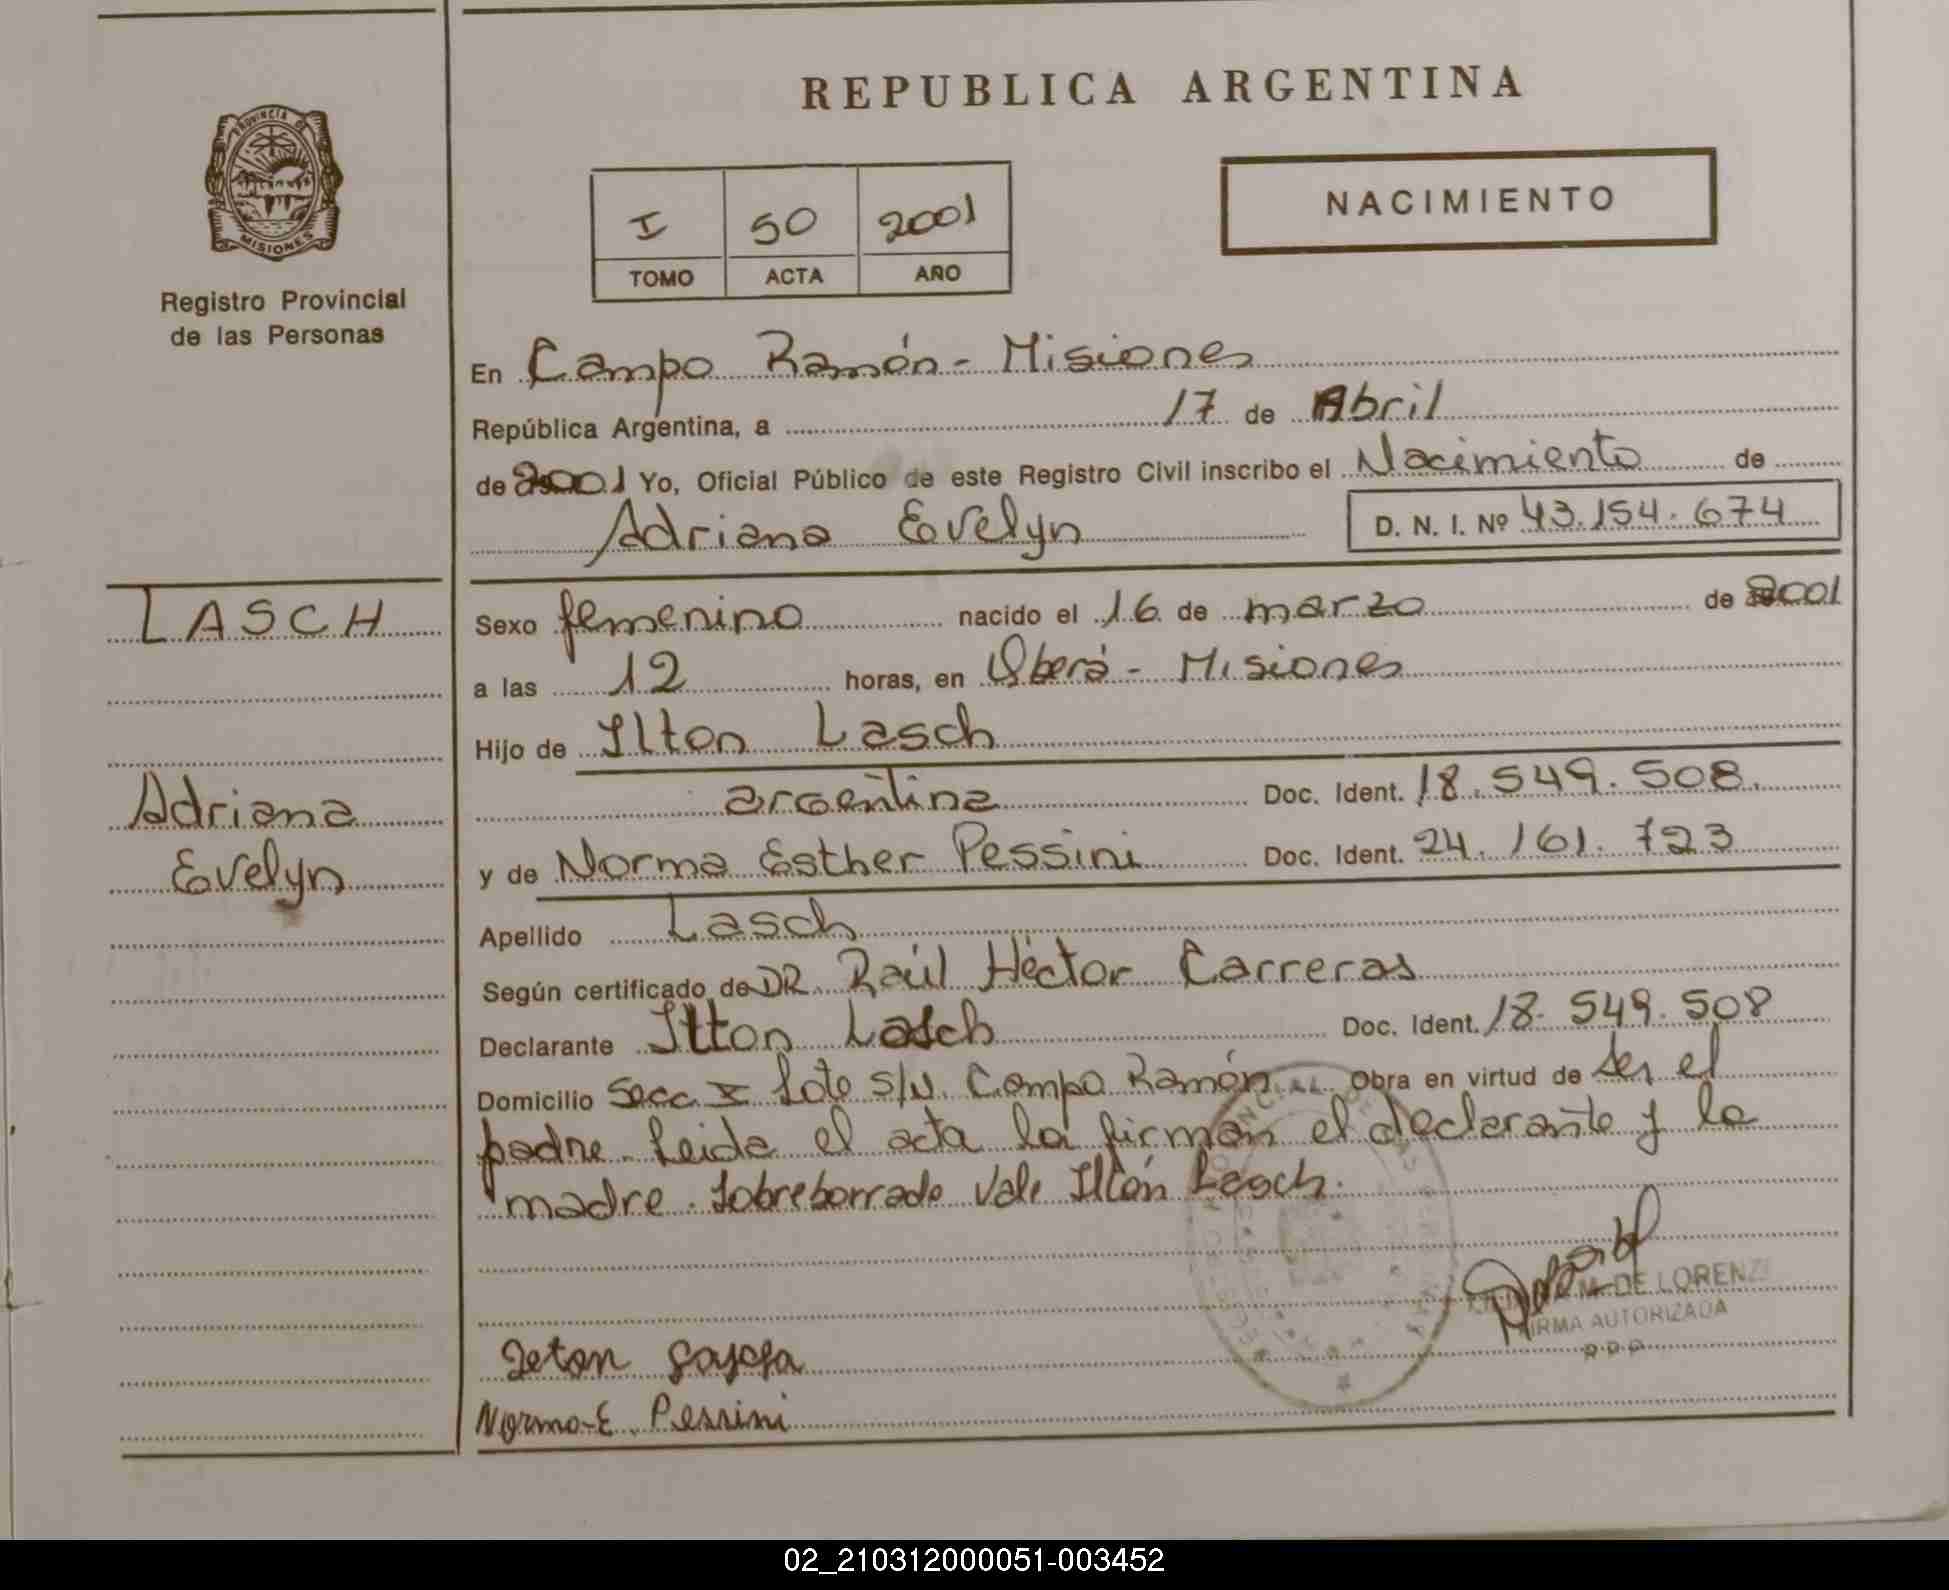 REPUBLICA ARGENTINA
PROVINCIA DE
MISIONES
Registro Provincial
de las Personas
I 50 2001
TOMO ACTA AÑO
NACIMIENTO
En Campo Ramón - Misiones
República Argentina, a 17 de Abril
de 2001 Yo, Oficial Público de este Registro Civil inscribo el Nacimiento de
Adriana Evelyn D. N. I. Nº 43.154.674
LASCH
Adriana
Evelyn
Sexo femenino nacido el 16 de marzo de 2001
a las 12 horas, en Oberá - Misiones
Hijo de Ilton Lasch
argentina Doc. Ident. 18.549.508.
y de Norma Esther Pessini Doc. Ident. 24.161.723
Apellido Lasch
Según certificado de DR. Raúl Héctor Carreras
Declarante Ilton Lasch Doc. Ident. 18.549.508
Domicilio Secc X Lote s/N. Campo Ramón Obra en virtud de ser el
padre. Leida el acta la firman el declarante y la
madre. Sobreborrado Vale Iltón Lasch.
M. DE LORENZI
FIRMA AUTORIZADA
Norma-E. Pessini
02_210312000051-003452